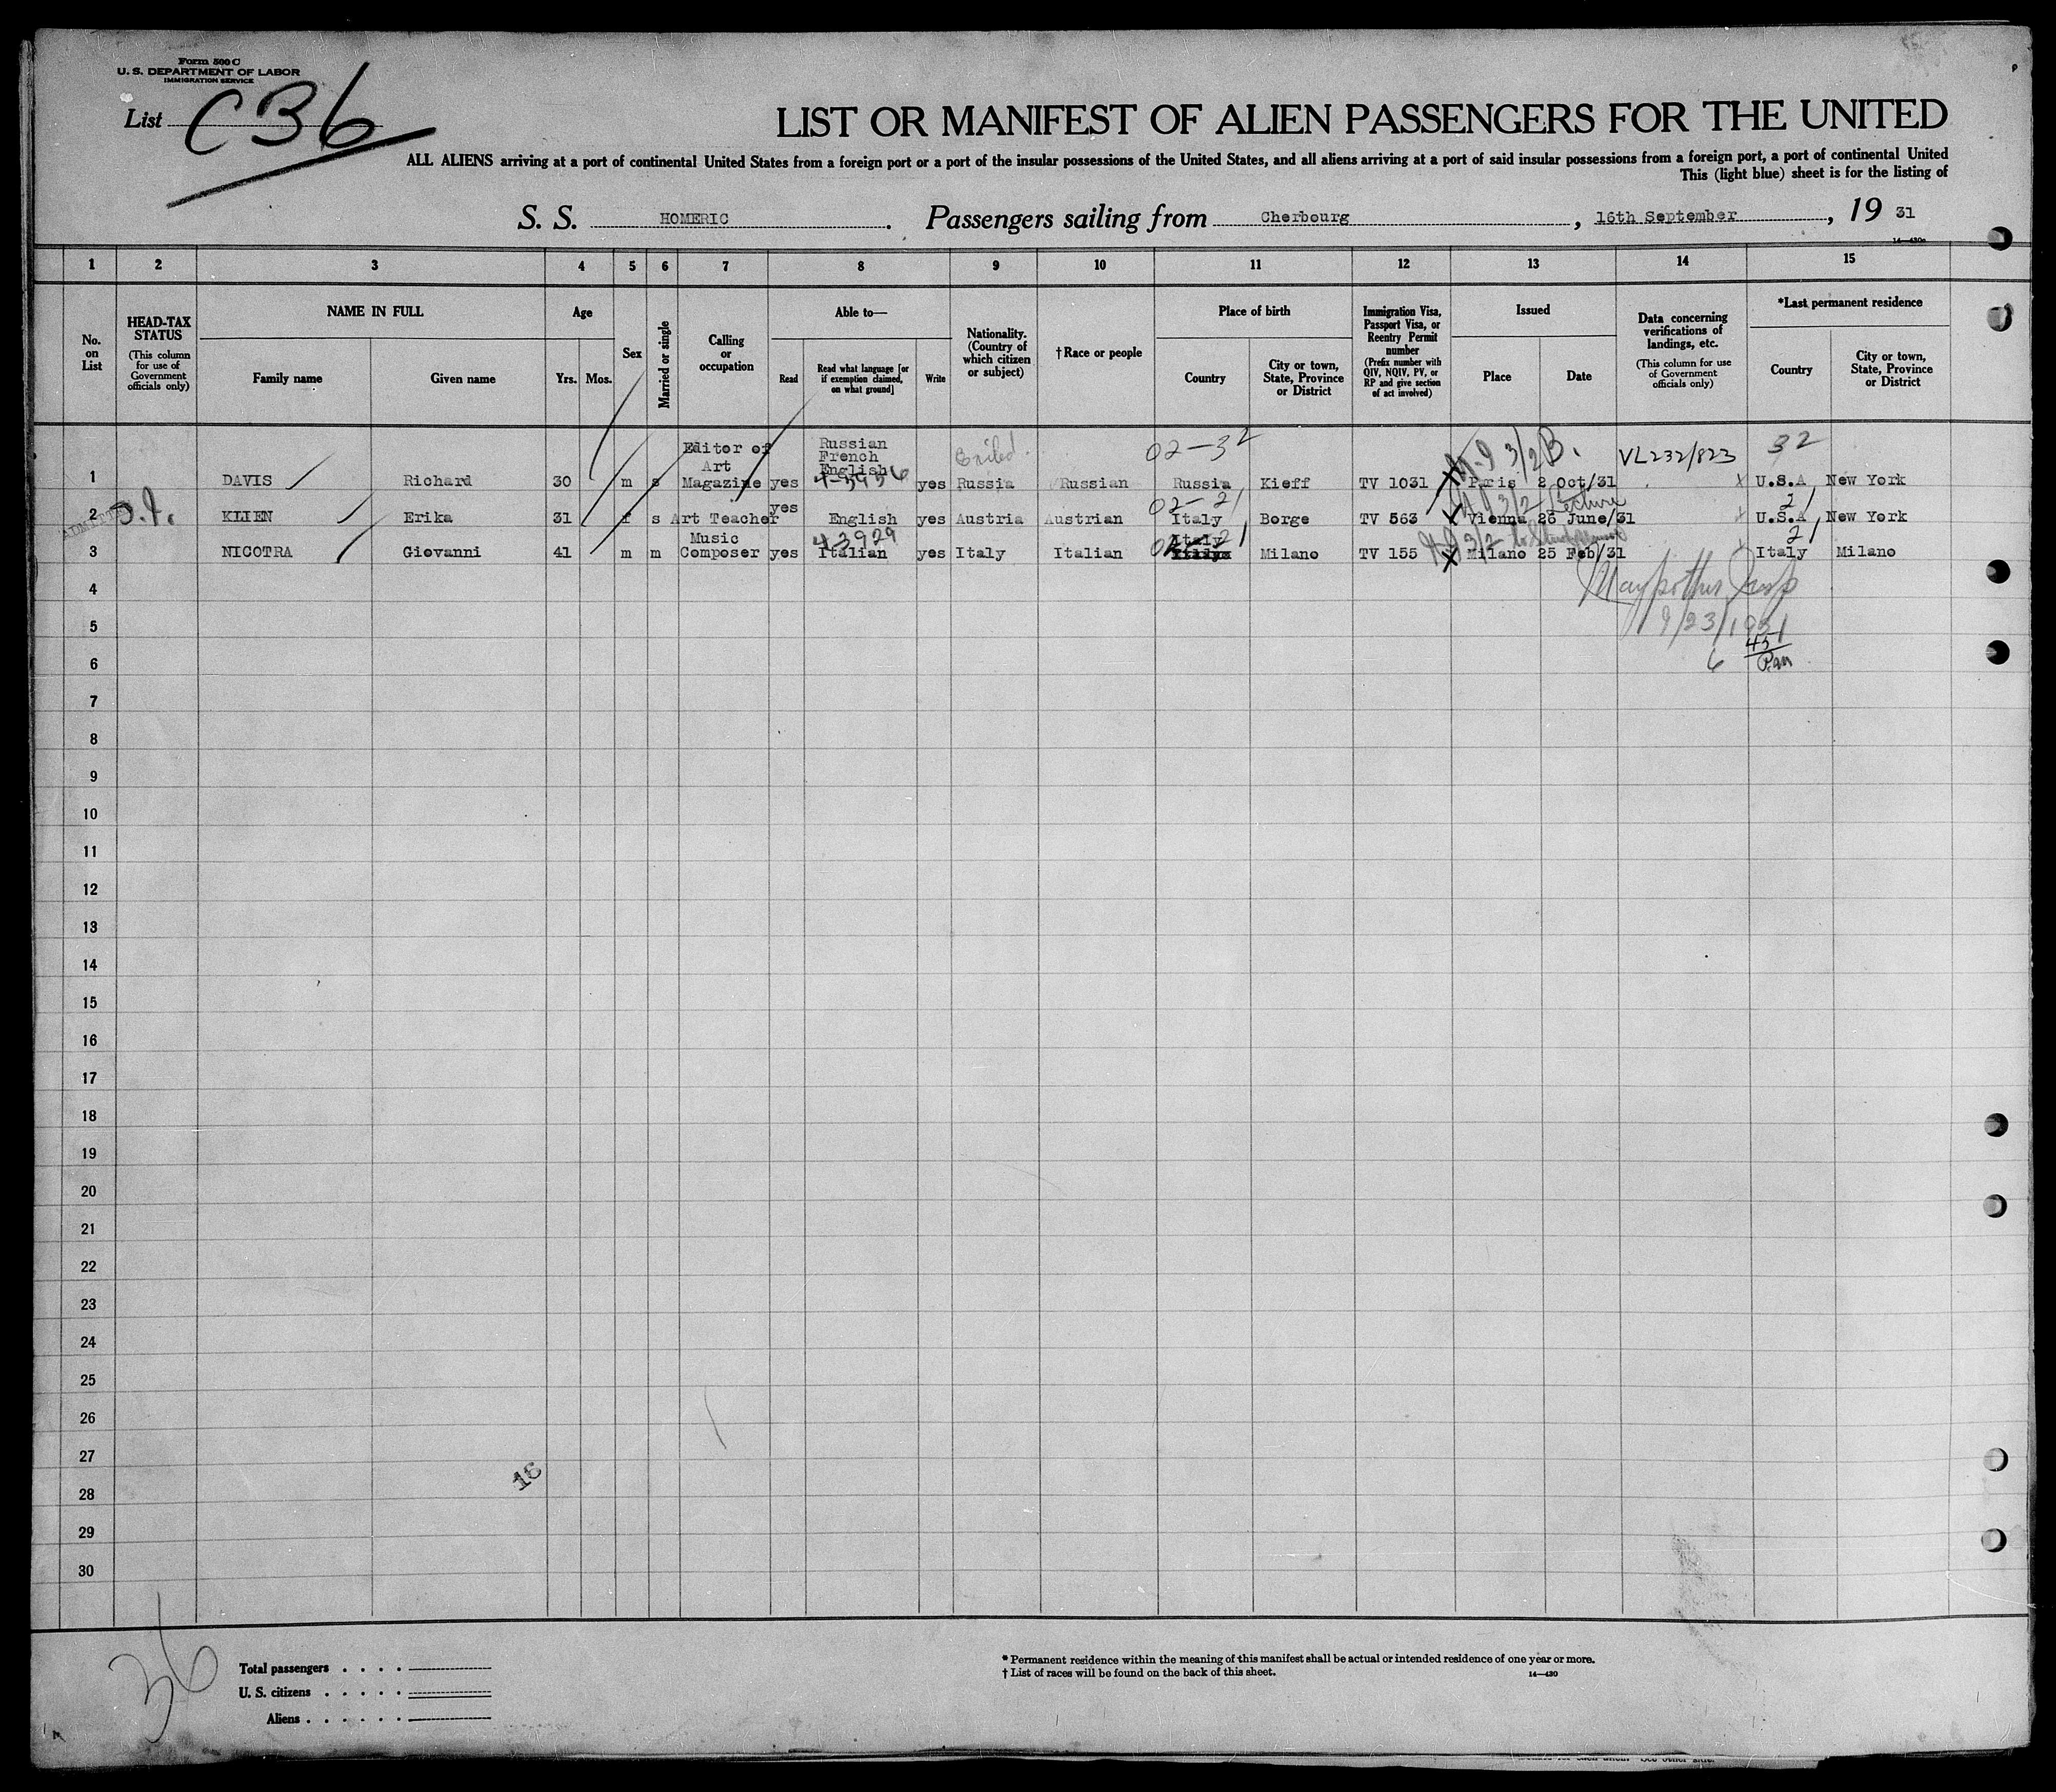 Form 500 C
U. S. DEPARTMENT OF LABOR
IMMIGRATION SERVICE
List C36
LIST OR MANIFEST OF ALIEN PASSENGERS FOR THE UNITED
ALL ALIENS arriving at a port of continental United States from a foreign port or a port of the insular possessions of the United States, and all aliens arriving at a port of said insular possessions from a foreign port, a port of continental United
This (light blue) sheet is for the listing of
S. S. HOMERIC. Passengers sailing from Cherbourg, 16th September, 19 31
1 2 3 4 5 6 7 8 9 10 11 12 13 14 15
No. on List
HEAD-TAX STATUS
(This column for use of Government officials only)
NAME IN FULL
Family name
Given name
Age
Yrs. Mos.
Sex
Married or single
Calling or occupation
Able to—
Read
Read what language [or if exemption claimed, on what ground]
Write
Nationality. (Country of which citizen or subject)
† Race or people
Place of birth
Country
City or town, State, Province or District
Immigration Visa, Passport Visa, or Reentry Permit number
(Prefix number with QIV, NQIV, PV, or RP and give section of act involved)
Issued
Place
Date
Data concerning verifications of landings, etc.
(This column for use of Government officials only)
*Last permanent residence
Country
City or town, State, Province or District
02-32 3/2 B. VL232/823 32
1 DAVIS Richard 30 m s Editor of Art Magazine yes Russian French English yes Russia Russian Russia Kieff TV 1031 Paris 2 Oct/31 U.S.A New York
02-21 3/2 21
2 KLIEN Erika 31 f s Art Teacher yes English yes Austria Austrian Italy Borge TV 563 Vienna 26 June/31 U.S.A New York
4-3929 3/2 21
3 NICOTRA Giovanni 41 m m Music Composer yes Italian yes Italy Italian Italy Milano TV 155 Milano 25 Feb/31 Italy Milano
4
9/23/1931
5
6
7
8
9
10
11
12
13
14
15
16
17
18
19
20
21
22
23
24
25
26
27
16
28
29
30
36
Total passengers . . . .
U. S. citizens . . . . .
Aliens . . . . . .
* Permanent residence within the meaning of this manifest shall be actual or intended residence of one year or more.
† List of races will be found on the back of this sheet.
14—430